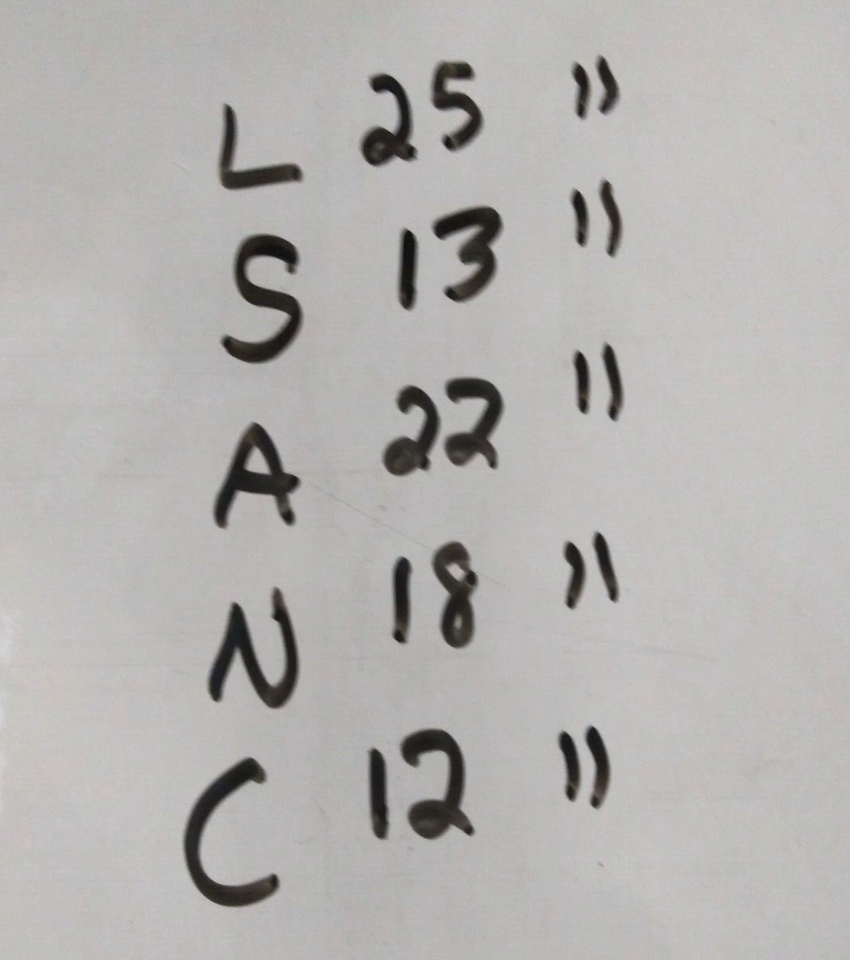 L 25 "
S 13 "
A 22 "
N 18 "
C 12 "